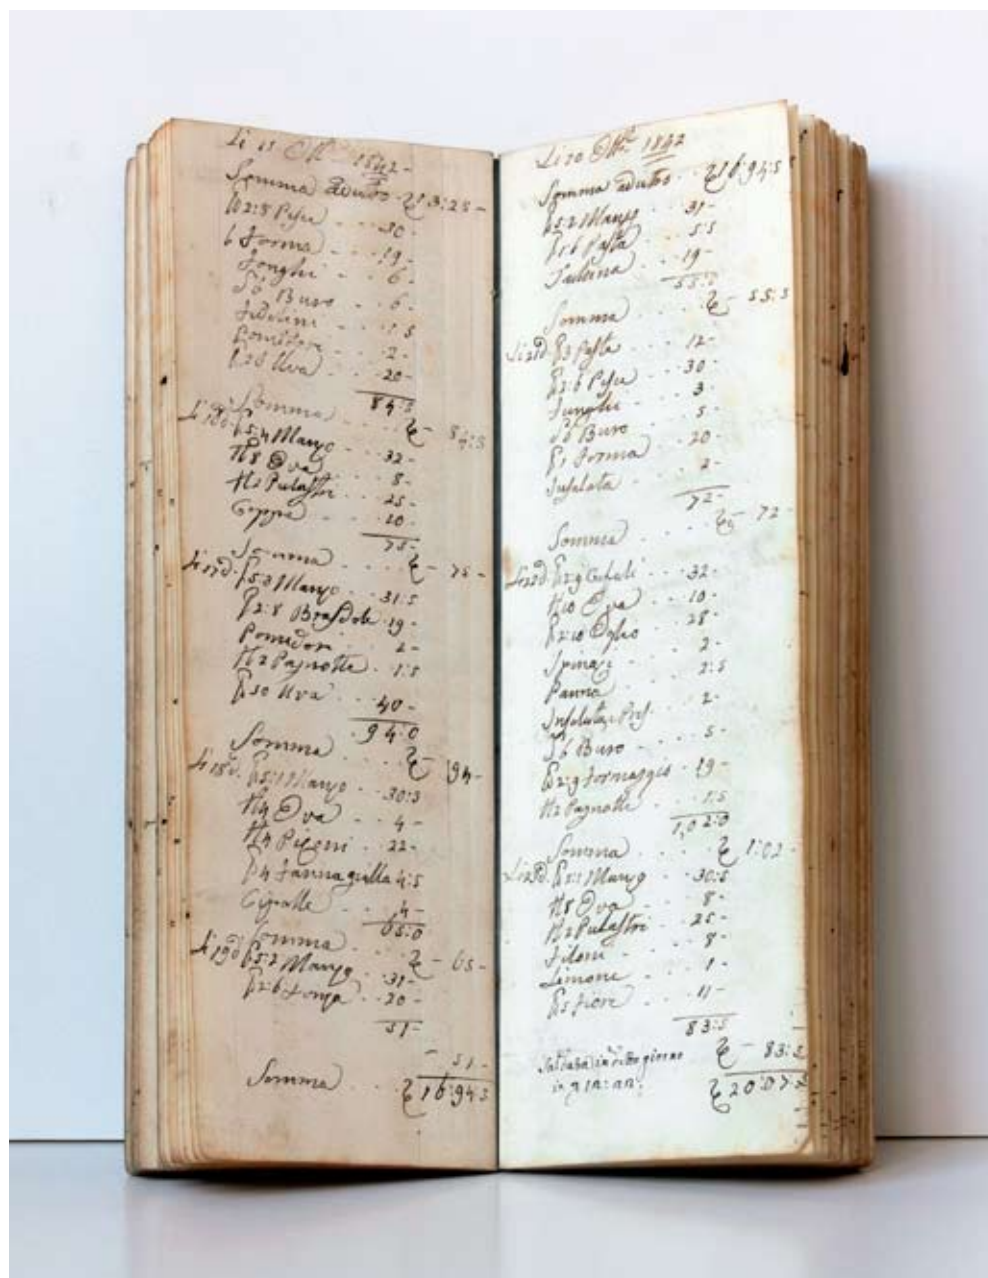 Li 15 Ottᵉ 1842-
Somma adietro 13:25-
2:8 Pesce 30-
6 Forma 19-
Fonghi 6-
Buro 6-
Fedelini 1:5
Pomidoro 2-
Uva 20-
84:5
Somma 84:5
5:4 Manzo 32-
N8 Ova 8-
N2 Pulastri 25-
10-
75-
Somma 75-
Li 17d. 5:3 Manzo 31:5
2:8 19-
Pomidori 2-
N2 Pagnotte 1:5
10 Uva 40-
94:0
Somma 94-
Li 18d. 5:1 Manzo 30:5
N4 Ova 4-
N4 Piceni 22-
4 Farina gialla 4:5
Cipolle 4-
65:0
Somma 65-
Li 19d 5:2 Manzo 31-
2:6 20-
51-
51-
Somma 16:94:5
Li 20 Ottᵉ 1842
Somma adietro 16:94:5
5:2 Manzo 31-
1:6 Pasta 5:5
19-
55:5
Somma 55:5
Li 21d. 3 Pasta 12-
2:6 Pesce 30-
Funghi 3-
Buro 5-
1 Forma 20-
Insalata 2-
72-
Somma 72-
Li 22d. 2:9 Cefali 32-
N10 Ova 10-
2:10 Oglio 28-
Spinazi 2-
Panna 2:5
Insalata 2-
Buro 5-
2:9 Formaggio 19-
N2 Pagnotte 1:5
1,02:0
Somma 1:02-
Li 23d. 5:1 Manzo 30:5
N8 Ova 8-
N2 Pulastri 25-
8-
Limone 1-
5 Fiore 11-
83:5
Saldata in detto giorno 83:5
20:07:5